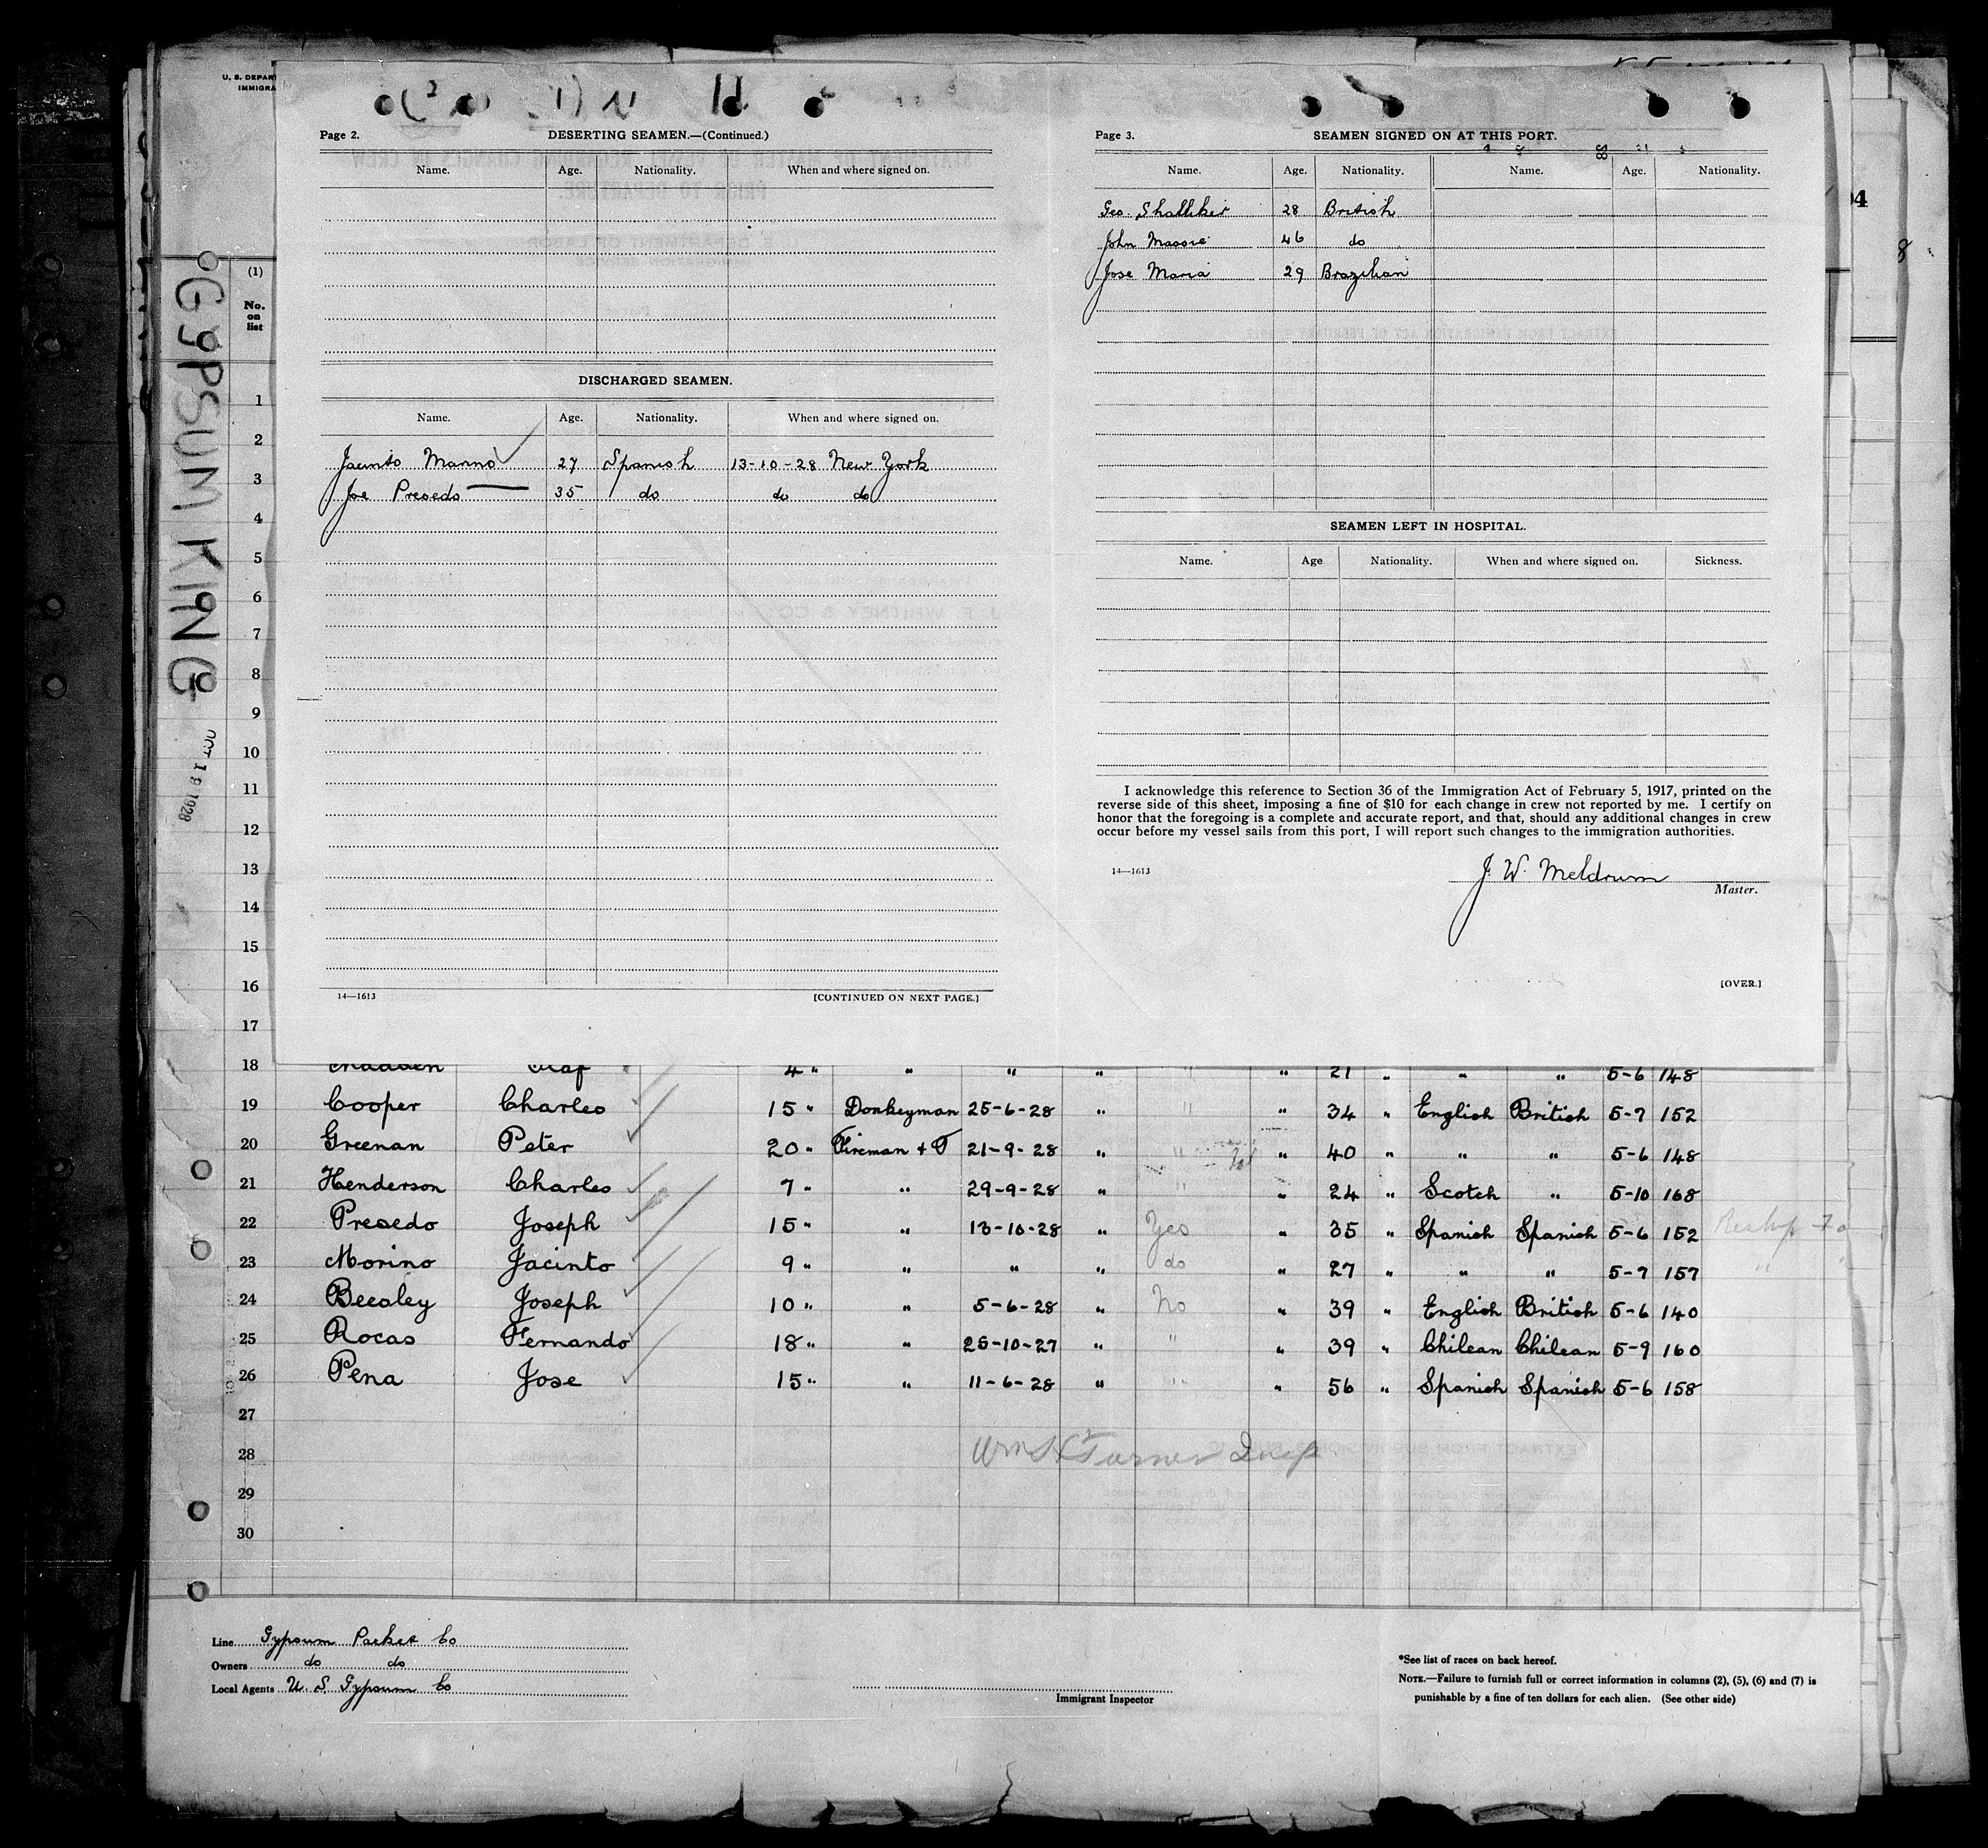 U. S. DEPAR
IMMIGRA
Page 2.
DESERTING SEAMEN.—(Continued.)
Name. Age. Nationality. When and where signed on.
DISCHARGED SEAMEN.
Name. Age. Nationality. When and where signed on.
Jacinto Marino 27 Spanish 13-10-28 New York
Joe Presedo 35 do do do
14—1613 [CONTINUED ON NEXT PAGE.]
Page 3.
SEAMEN SIGNED ON AT THIS PORT.
Name. Age. Nationality. Name. Age. Nationality.
Geo. Shalliker 28 British
John Moore 46 do
Jose Maria 29 Brazilian
SEAMEN LEFT IN HOSPITAL.
Name. Age Nationality. When and where signed on. Sickness.
I acknowledge this reference to Section 36 of the Immigration Act of February 5, 1917, printed on the
reverse side of this sheet, imposing a fine of $10 for each change in crew not reported by me. I certify on
honor that the foregoing is a complete and accurate report, and that, should any additional changes in crew
occur before my vessel sails from this port, I will report such changes to the immigration authorities.
14—1613
J. W. Meldrum
Master.
[OVER.]
GYPSUM KING
OCT 19 1928
(1)
No.
on
list
1
2
3
4
5
6
7
8
9
10
11
12
13
14
15
16
17
18 Olaf 4 " " " " " " 21 " " " 5-6 148
19 Cooper Charles 15 " Donkeyman 25-6-28 " " " 34 " English British 5-7 152
20 Greenan Peter 20 " Fireman & T 21-9-28 " " " 40 " " " 5-6 148
21 Henderson Charles 7 " " 29-9-28 " " " 24 " Scotch " 5-10 168
22 Presedo Joseph 15 " " 13-10-28 " Yes " 35 " Spanish Spanish 5-6 152
23 Morino Jacinto 9 " " " " do " 27 " " " 5-7 157
24 Beesley Joseph 10 " " 5-6-28 " No " 39 " English British 5-6 140
25 Rocas Fernando 18 " " 25-10-27 " " " 39 " Chilean Chilean 5-9 160
26 Pena Jose 15 " " 11-6-28 " " " 56 " Spanish Spanish 5-6 158
27
28 Wm H Turner Insp
29
30
Line Gypsum Packet Co
Owners do do
Local Agents U. S. Gypsum Co
Immigrant Inspector
*See list of races on back hereof.
NOTE.—Failure to furnish full or correct information in columns (2), (5), (6) and (7) is
punishable by a fine of ten dollars for each alien. (See other side)